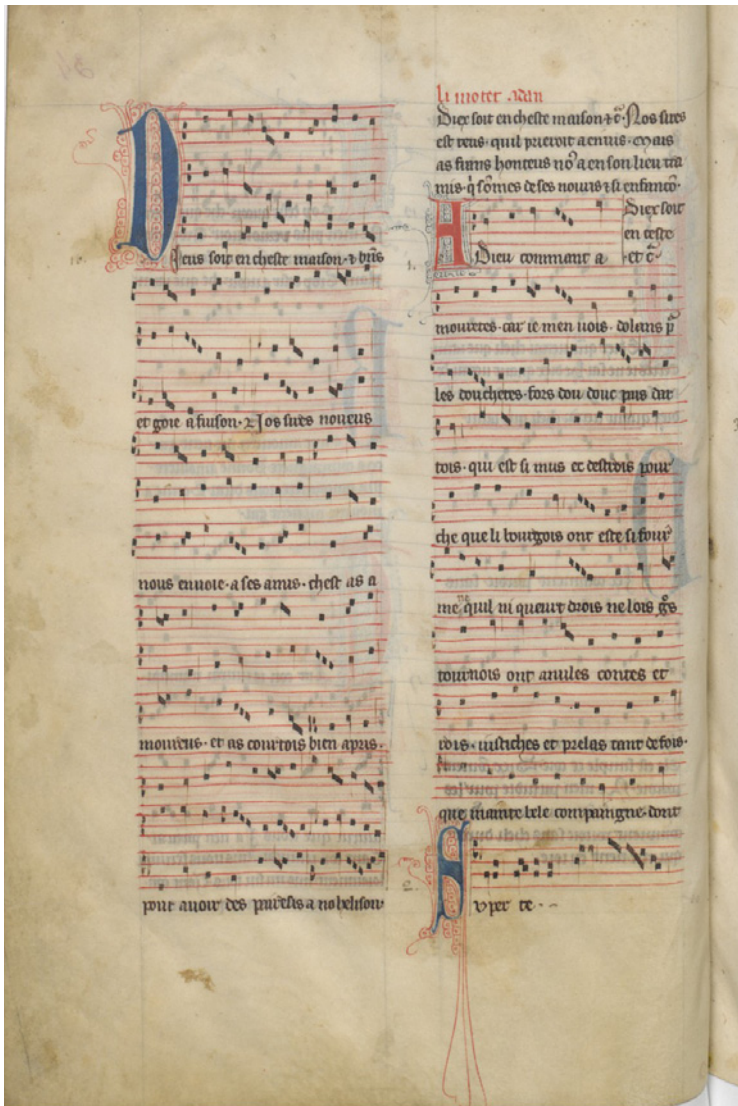 Dieus soit en cheste maison · ⁊ biẽs
et goie a fuison · ⁊ Nos sires noveus
nous envoie · a ses amis · chest as a
moureus · et as courtois bien apris ·
pour avoir des pairesis a nohelison
li motet adan
Diex soit en cheste maison ⁊ c̃ · Nos sires
est teus · quil prieroit a envis · mais
as frans honteus no9 a en son lieu tra
mis · q̃ sõmes de ses nouris ⁊ si enfancõ ·
Diex soit
en ceste
et c̃
A Dieu commant a
mouretes · car ie men vois · dolans p̃
les douchetes · fors dou douc pais dar
tois · qui est si mus et destrois pour
che que li bourgois ont este si four
me ne quil ni queurt drois ne lois gˢos
tournois ont anules contes et
rois · iustiches et prelas tant de fois ·
que mainte bele compaingne · dont
Super te